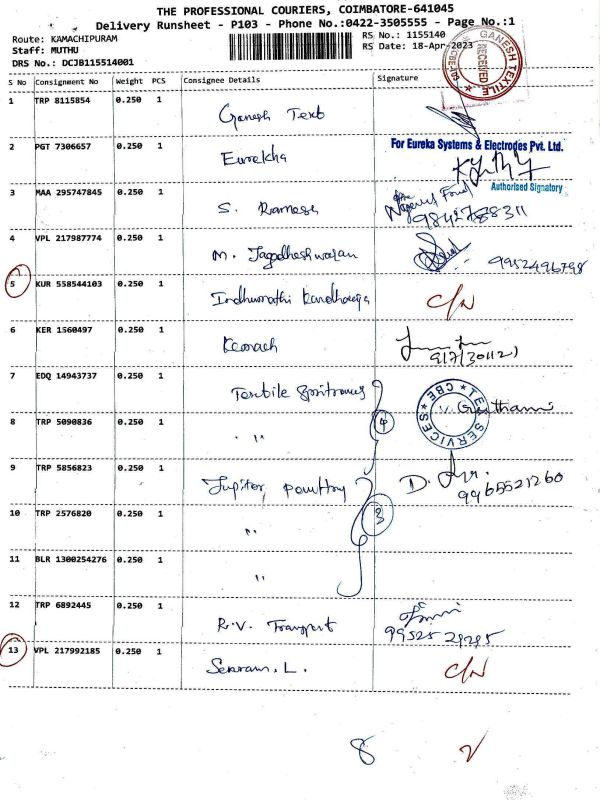 THE PROFESSIONAL COURIERS, COIMBATORE-641045
Delivery Runsheet - P103 - Phone No.:0422-3505555 - Page No.:1
Route: KAMACHIPURAM
Staff: MUTHU
DRS No.: DCJB115514001
RS No.: 1155140
RS Date: 18-Apr-2023
GANESH TEXTILE
RECEIVED
S No Consignment No Weight PCS Consignee Details Signature
1 TRP 8115854 0.250 1 Ganesh Texb
2 PGT 7306657 0.250 1 Eurekha
For Eureka Systems & Electrodes Pvt. Ltd.
Authorised Signatory
3 MAA 295747845 0.250 1 S. Ramesh
9842788311
4 VPL 217987774 0.250 1 M. Jagadheshwaran 9952496798
5 KUR 558544103 0.250 1 C/N
6 KER 1560497 0.250 1
7 EDQ 14943737 0.250 1
TEX SERVICES CBE
V. Gowthami
8 TRP 5090836 0.250 1 " 4
9 TRP 5856823 0.250 1 Jupiter poultry
9965521260
10 TRP 2576820 0.250 1 " 3
11 BLR 1300254276 0.250 1 "
12 TRP 6892445 0.250 1 R.V. Transport
99525 29295
13 VPL 217992185 0.250 1 C/N
8 2